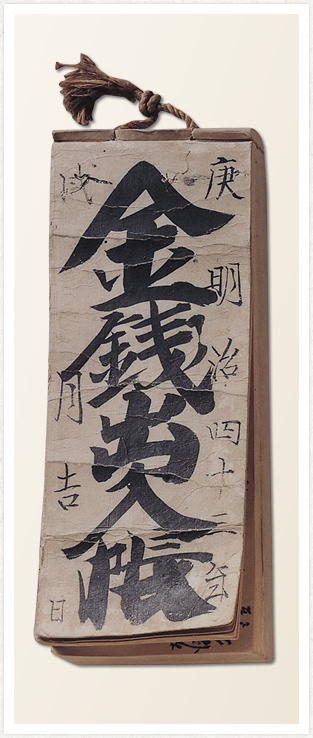 庚明治四十三年
金銭出入帳
戌月吉日